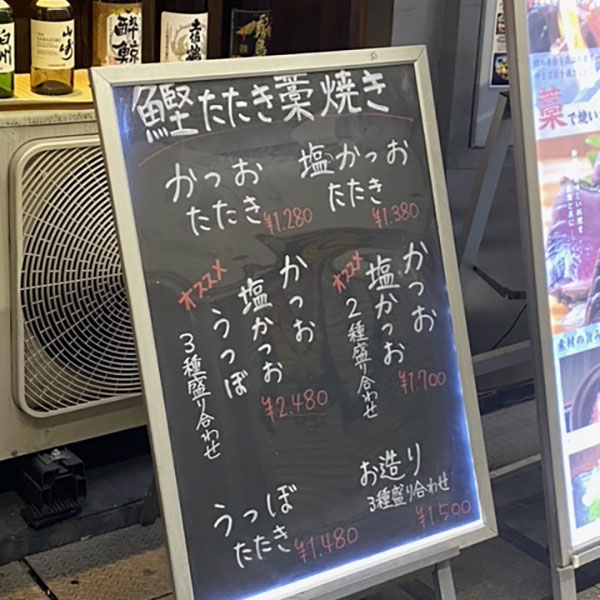 白州
山崎
酔鯨
鰹たたき藁焼き
かつお
たたき ¥1.280
塩かつお
たたき ¥1.380
オススメ
かつお
塩かつお
うつぼ
3種盛り合わせ
¥2.480
オススメ
かつお
塩かつお
2種盛り合わせ
¥1.700
うつぼ
たたき ¥1.480
お造り
3種盛り合わせ
¥1.500
藁で焼い
素材の旨み